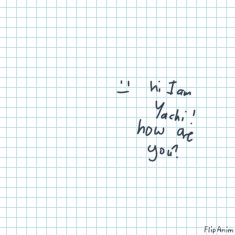 :) hi I am
Yachi!
how are
you?
FlipAnim